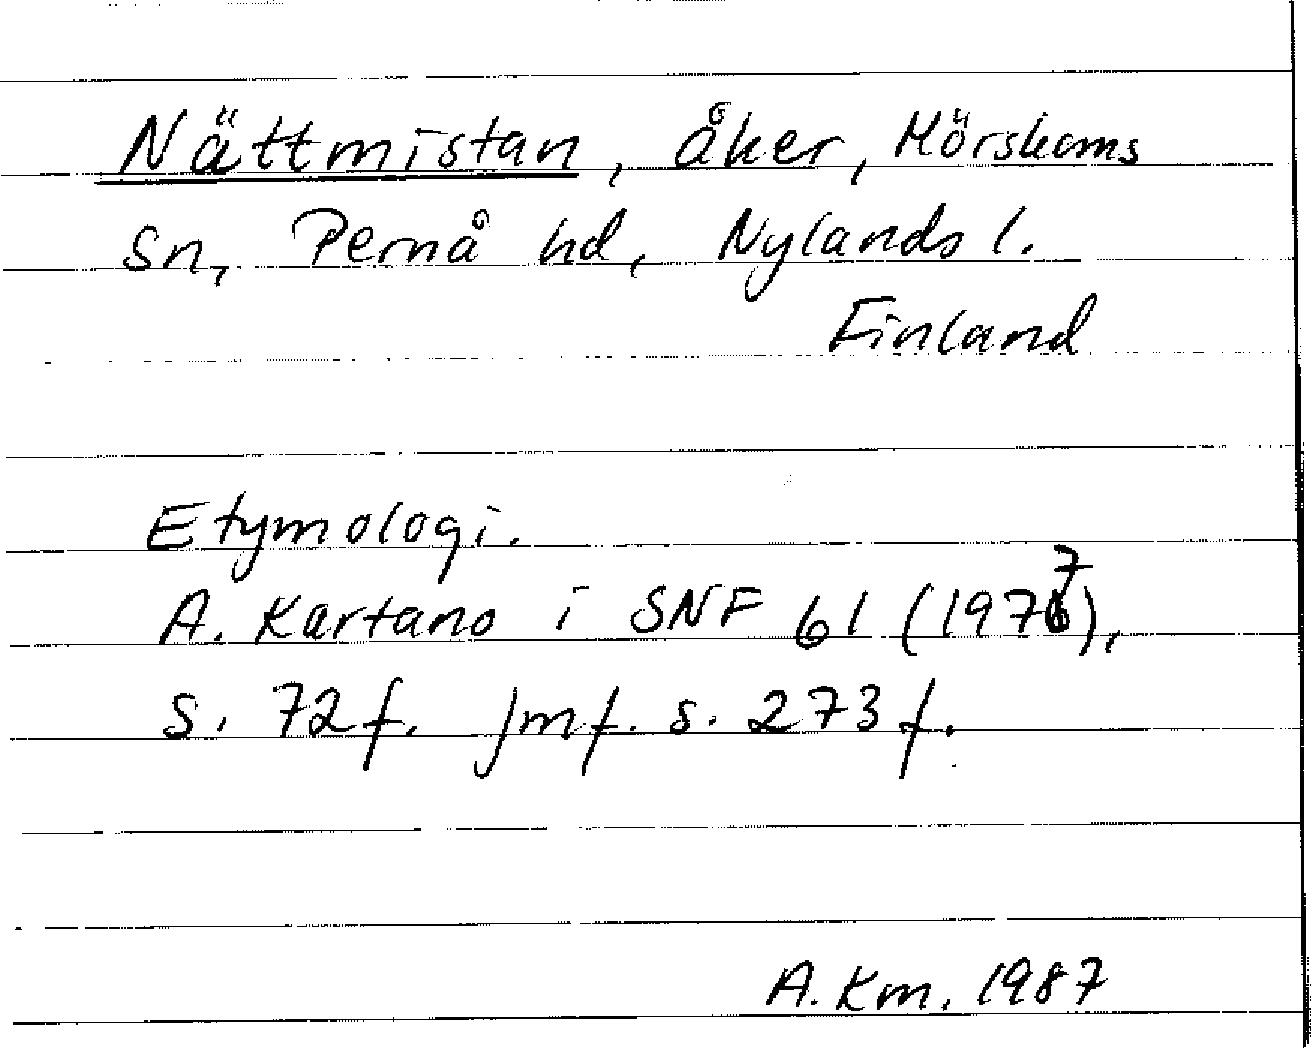 Nättmistan, åker, Mörskoms
sn, Pernå hd, Nylands l.
Finland
Etymologi.
A. Kartano i SNF 61 (1977),
s. 72f. Jmf. s. 273 f.
A. Km. 1987